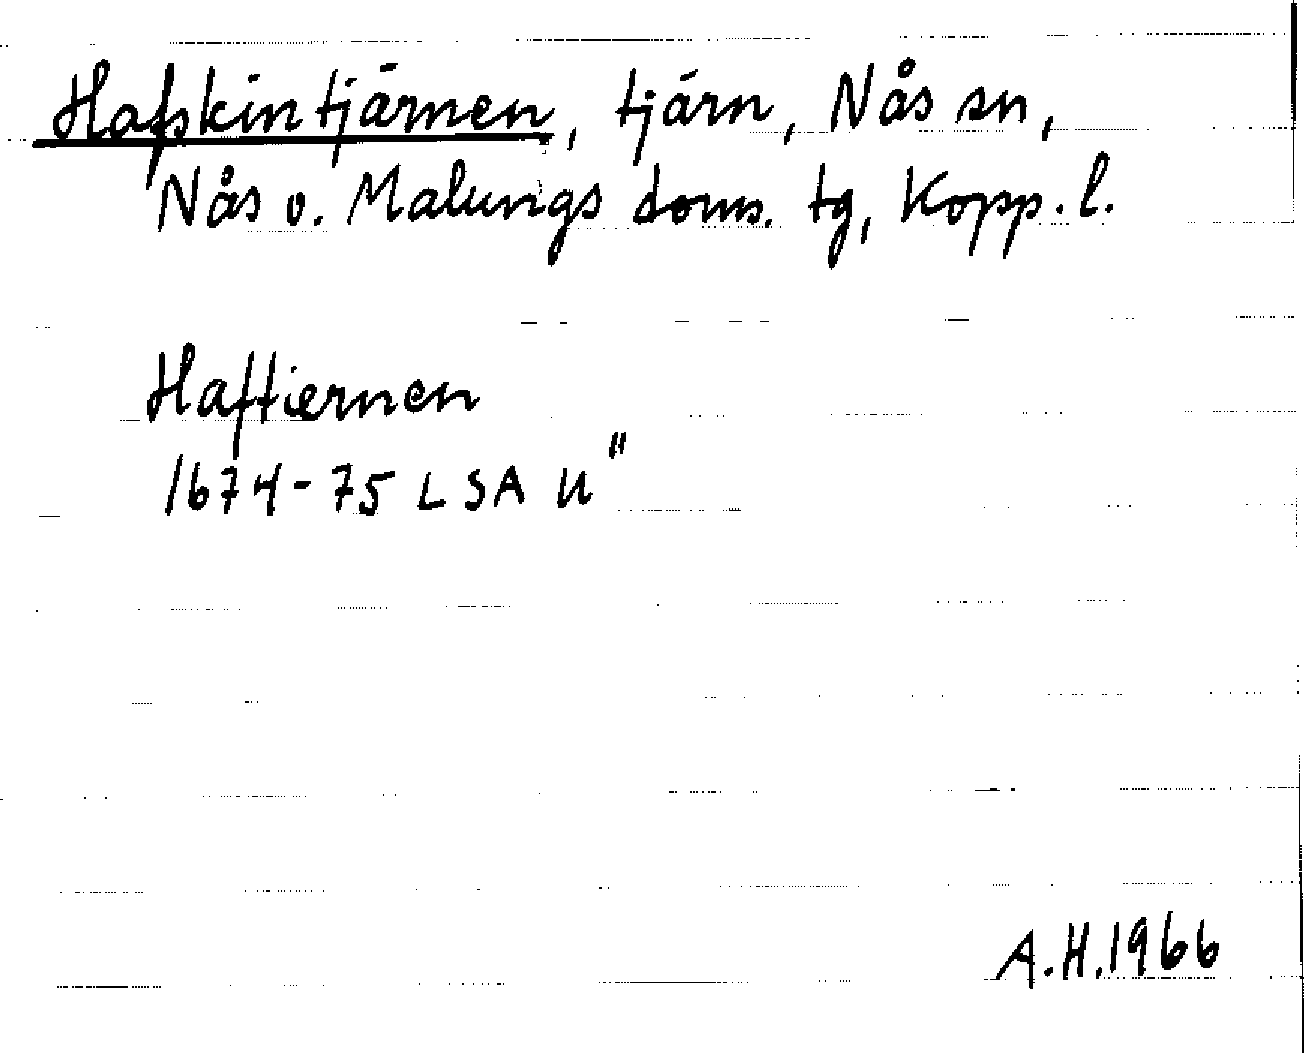 Hafskintjärnen, tjärn, Nås sn,
Nås o. Malungs doms. tg, Kopp. l.
Haftiernen
1674-75 LSA U"
A.H.1966